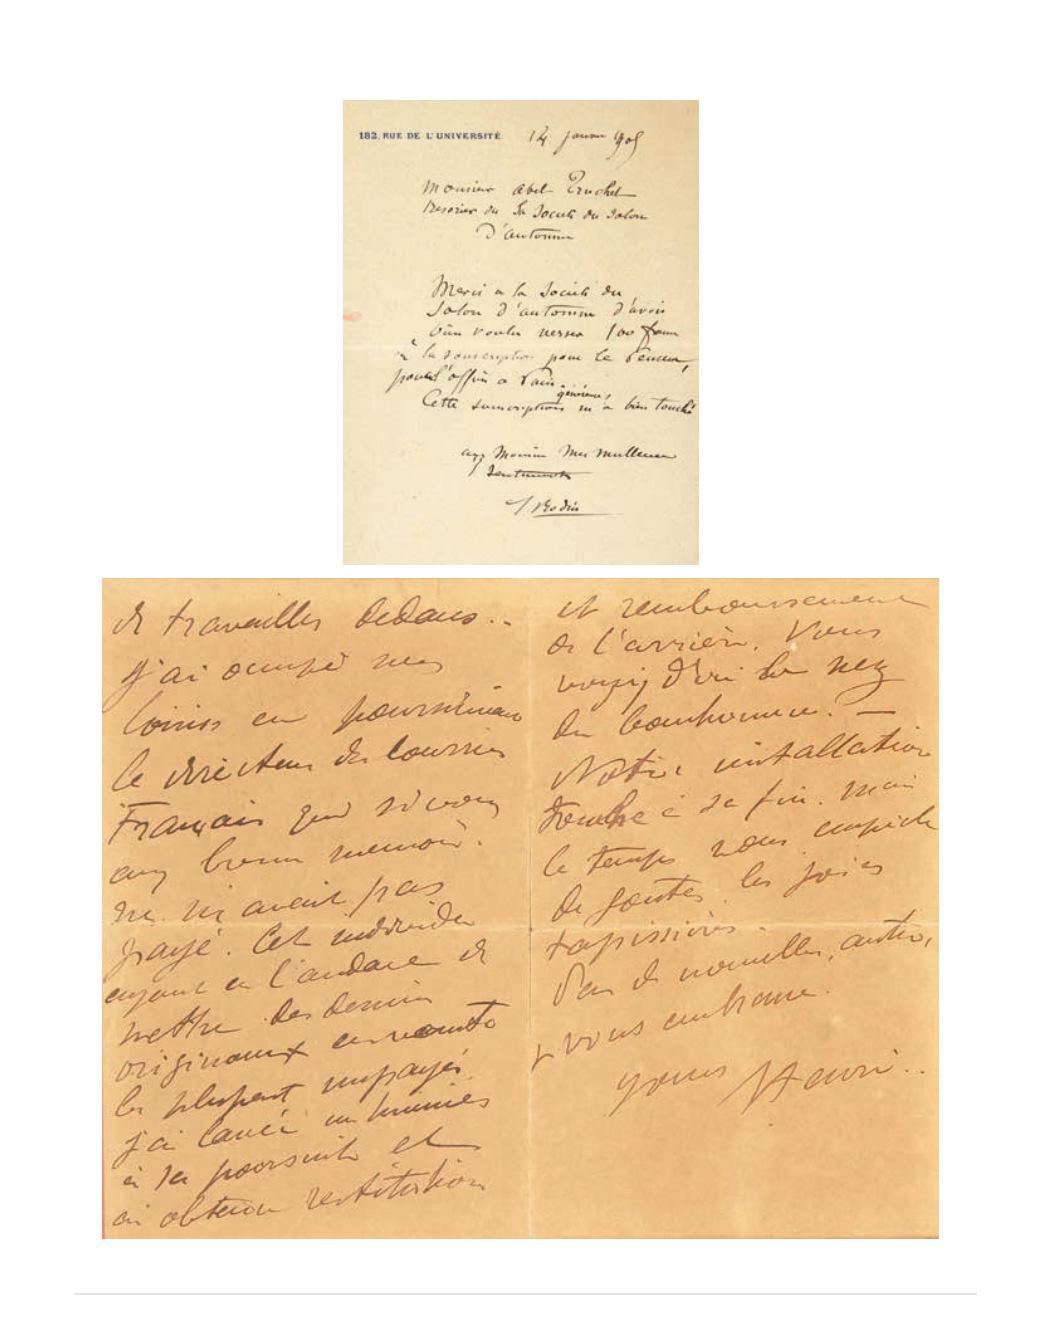 182, RUE DE L'UNIVERSITÉ 14 janvier 1905
Monsieur Abel Truchet
Tresorier de la Société du Salon
D'automne
Merci a la Société du
Salon d'automne d'avoir
bien voulu verser 100 francs
à la souscription pour le Penseur,
pour l'offrir a Paris.
Cette généreuse souscription m'a bien touché
ayez Monsieur mes meilleurs
sentiments
A Rodin
de travailler dedans..
J'ai occupé mes
loisirs en poursuivant
le directeur du Courrier
Français qui si vous
avez bonne memoire
ne m'avait pas
payé. Cet individu
ayant eu l'audace de
mettre des dessins
originaux en vente
la plupart impayés
j'ai lancé un huissier
à sa poursuite et
ai obtenu restitution
et remboursement
de l'arriéré. Vous
voyez d'ici le nez
du bonhomme. —
Notre installation
touche à sa fin. mais
le temps nous empêche
de gouter les joies
tapissières.
Pas de nouvelles autres,
je vous embrasse.
yours Henri..